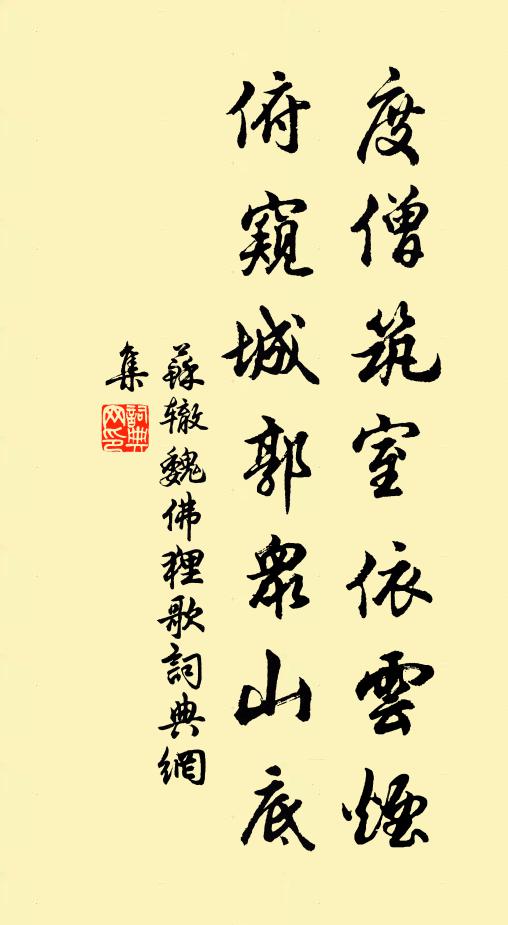 度僧筑室依雲煙
俯窺城郭衆山底
蘇辙魏佛狸歌詞典網
集
詞典網印